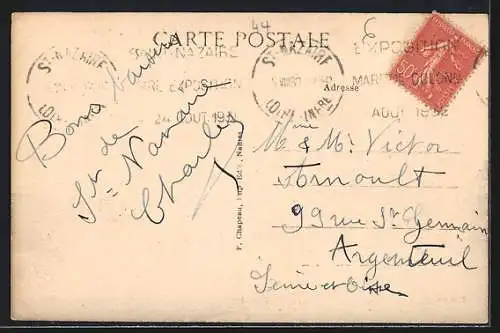 44
CARTE POSTALE
ST-NAZAIRE
LOIRE-INFRE
ST-NAZAIRE
EXPOSITION
AOUT 1932
ST-NAZAIRE
LOIRE-INFRE
EXPOSITION
MARITIME COLONIALE
AOUT 1932
50
Bons baisers
de
St-Nazaire
Charles
F. Chapeau, Imp.-Edit., Nantes
Adresse
Mme
& Mr Victor
Arnoult
99 rue St Germain
Argenteuil
Seine et Oise